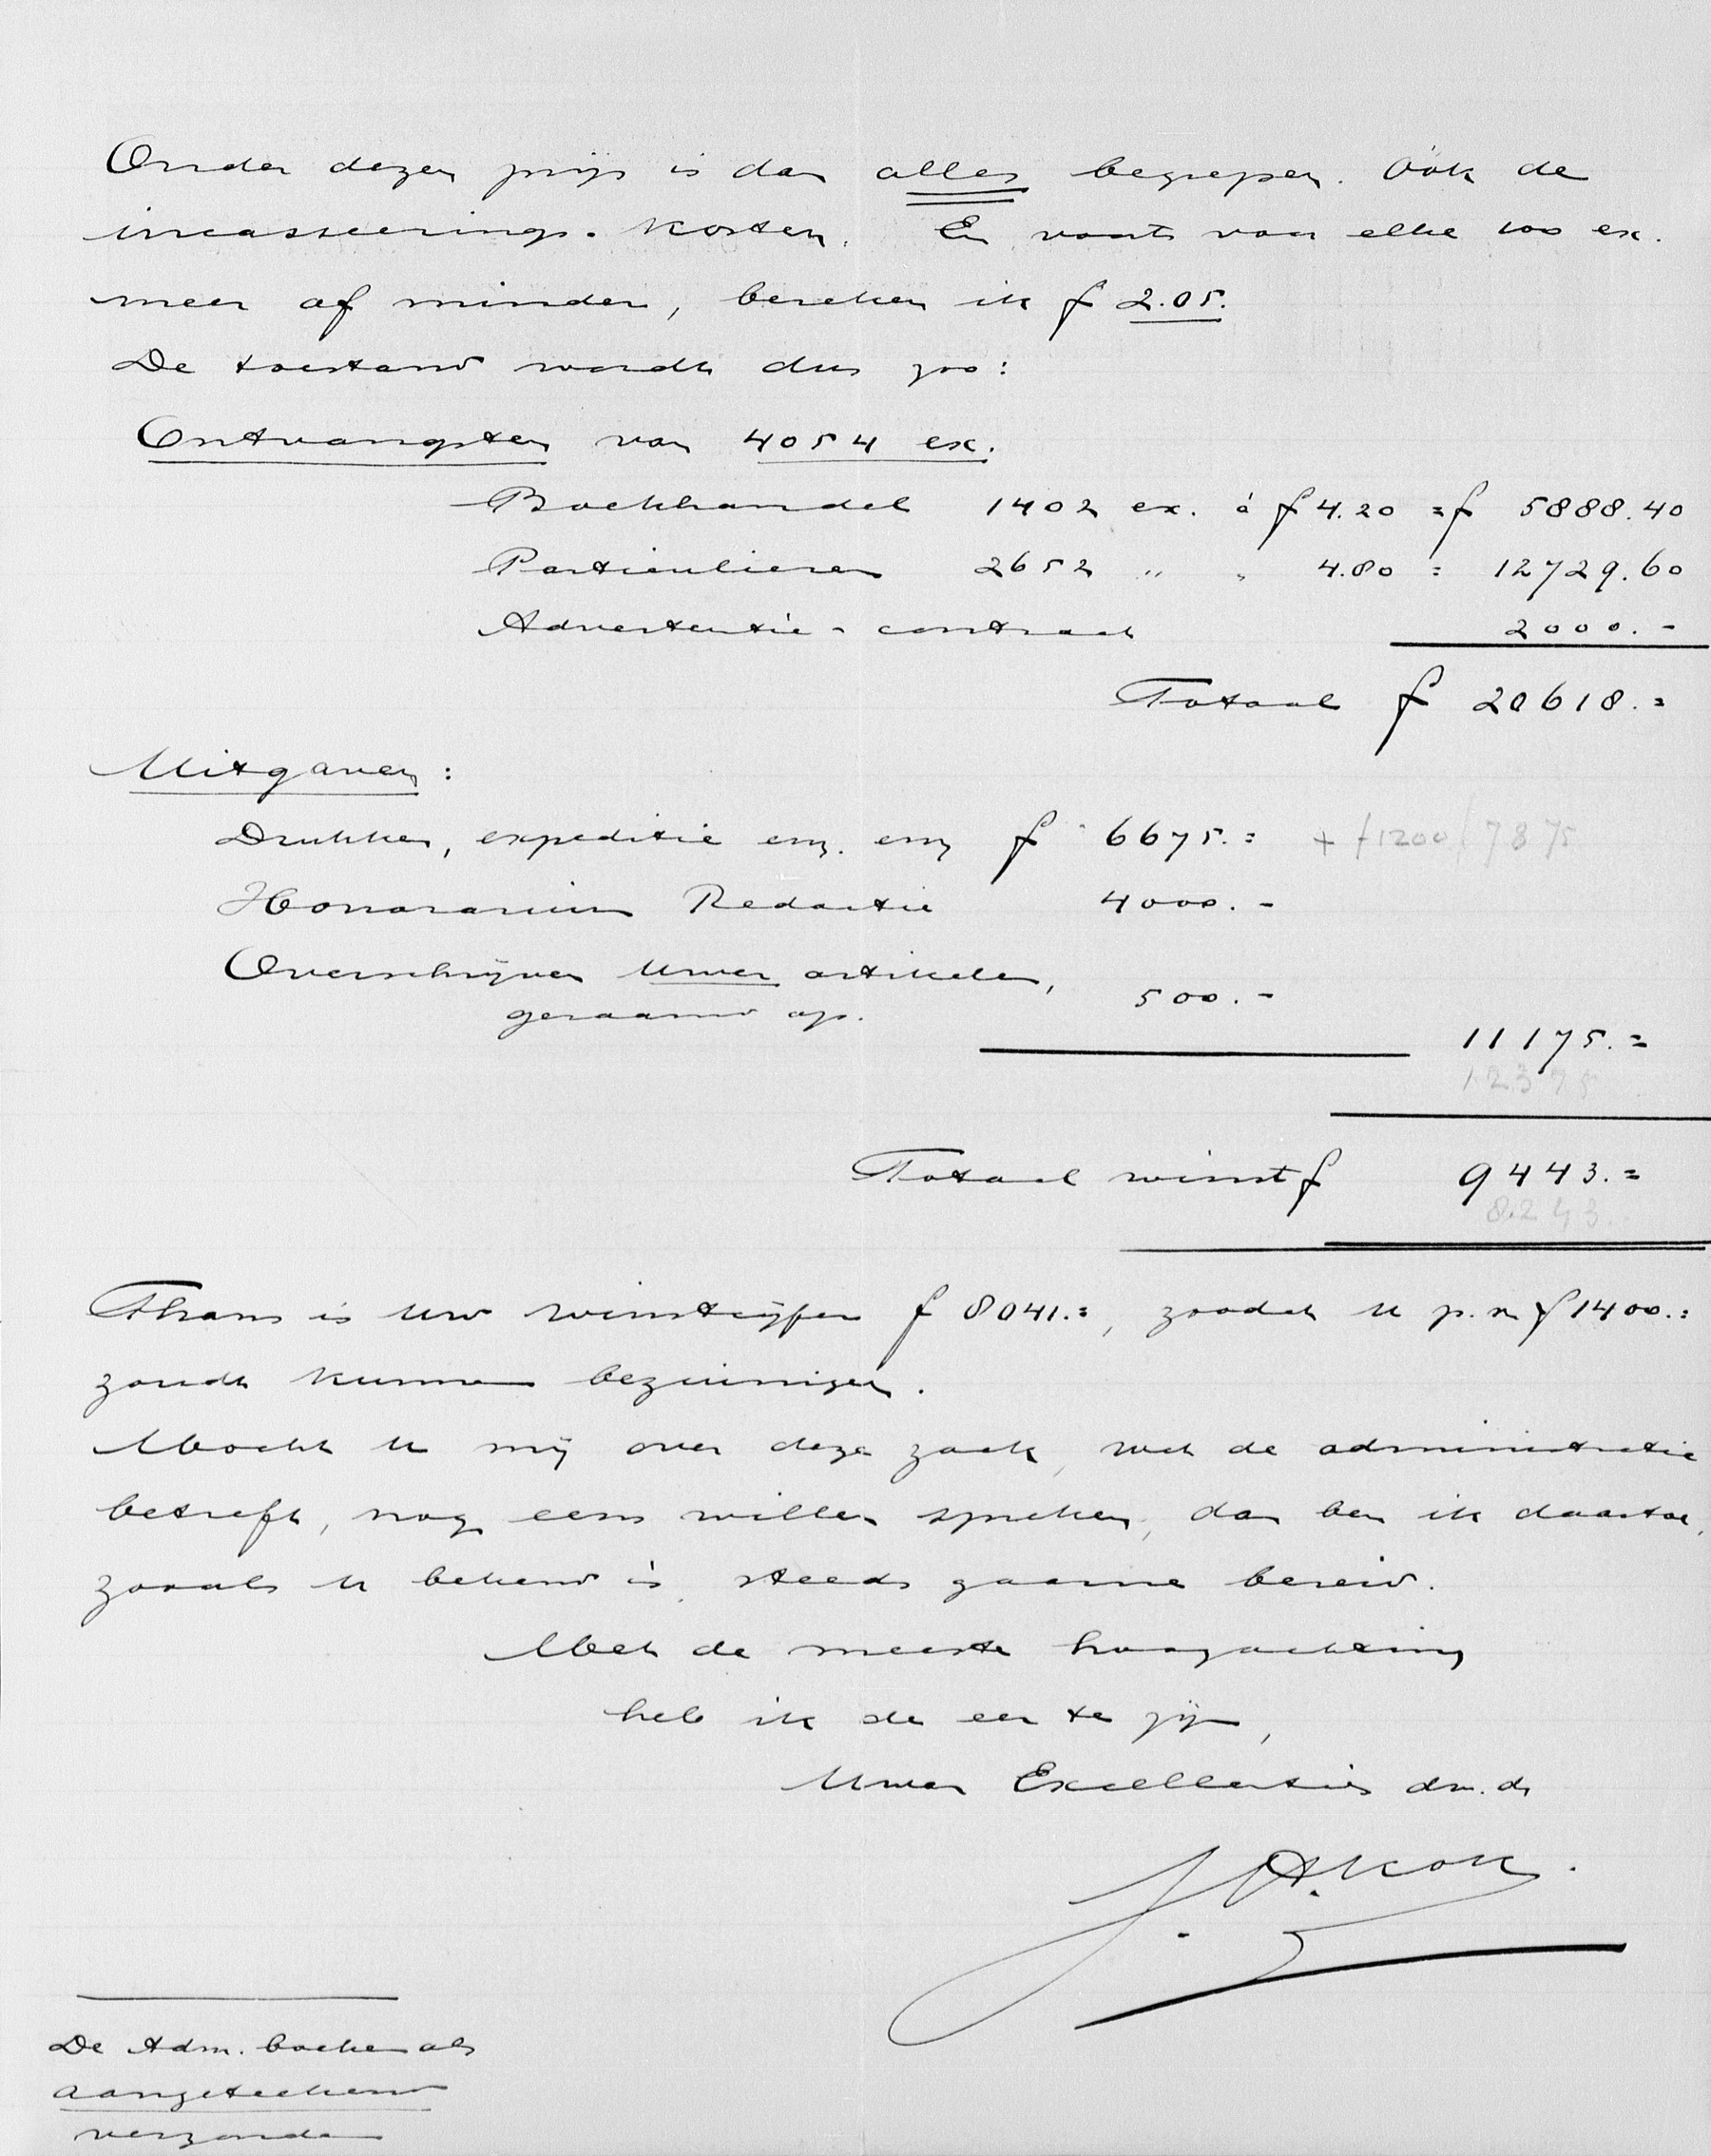 Onder dezen prijs is dan alles begrepen. Óók de
incasseerings-kosten. En voorts van elke 100 ex.
meer of minder, bereken ik f 2.05.
De toestand wordt dus zoo:
Ontvangsten van 4054 ex.
Boekhandel 1402 ex. á f 4.20 = f 5888.40
Particulieren 2652 " " 4.80 = 12729.60
Advertentie-contract 2000.-
Totaal f 20618.=
Uitgaven:
Drukken, expeditie enz. enz f 6675.= + f 1200 / 7875
Honorarium Redactie 4000.-
Overschrijven Uwer artikelen,
geraamd op. 500.-
11175.=
12375
Totaal winst f 9443.=
8243.-
Thans is Uw winstcijfer f 8041.=, zoodat U p.m f 1400.=
zoudt kunnen bezuinigen.
Mocht U mij over deze zaak, wat de administratie
betreft, nog eens willen spreken, dan ben ik daartoe,
zooals U bekend is, steeds gaarne bereid.
Met de meeste hoogachting
heb ik de eer te zijn,
Uwer Excellenties dw. dr
J. A. Kok.
De Adm. boeken als
aangeteekend
verzonden